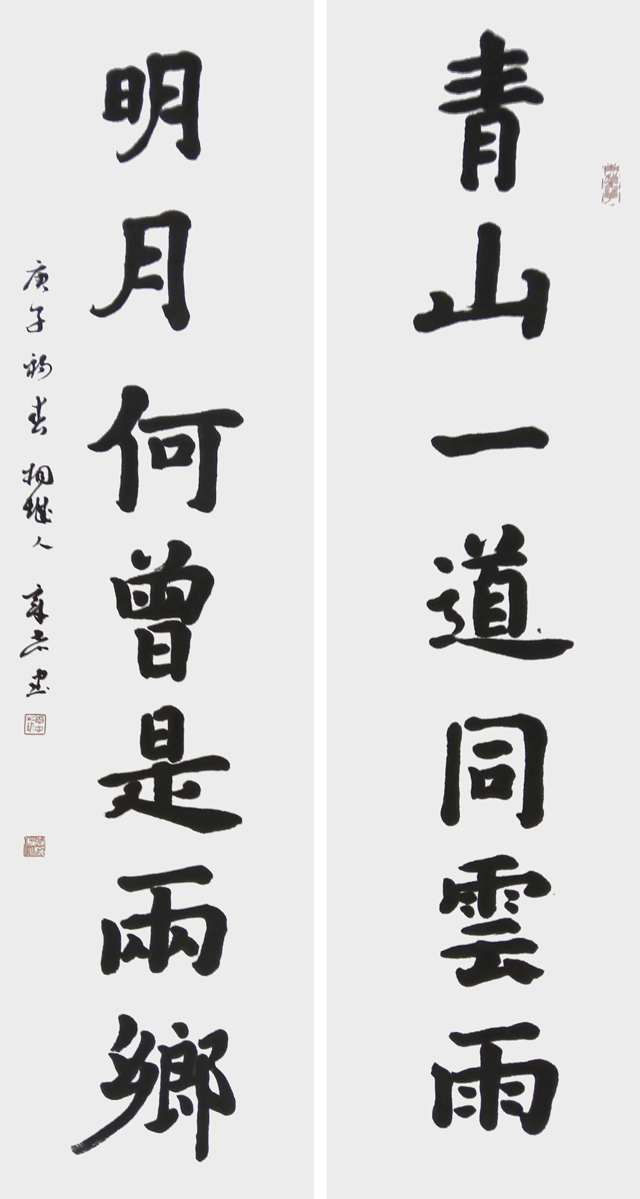 青山一道同雲雨
明月何曾是兩鄉
庚子初春